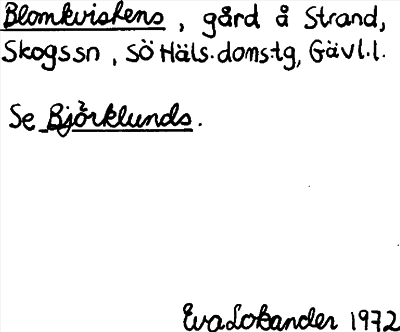 Blomkvistens, gård å Strand,
Skogssn, Sö Häls. doms-tg, Gävl.l.
Se Björklunds.
Eva Lobander 1972